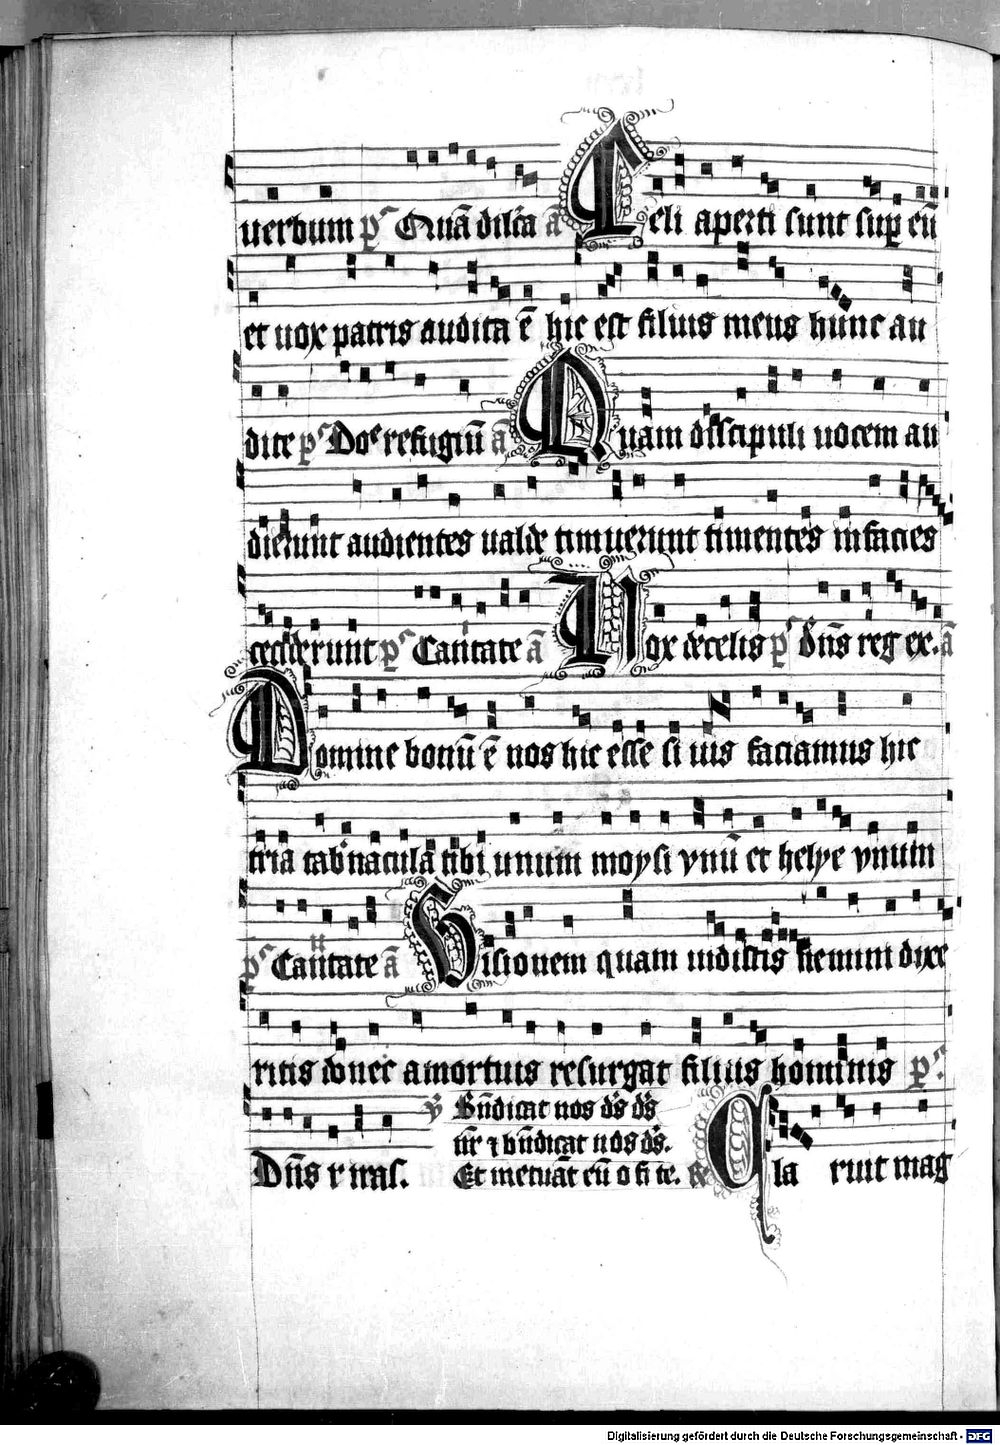 uerbum ps Quā dilcā ā Celi aperti sunt sup eū
et uox patris audita ē hic est filius meus hunc au
dite ps Do refugiū ā Quam discipuli uocem au
dierunt audientes ualde timuerunt timentes in facies
ceciderunt ps Cantate ā Uox de celis ps dn̄s reg ex. ā
Domine bonū ē nos hic esse si uis faciamus hic
tria tab'nacula tibi unum moysi vnū et helye vnum
ps Cantate ā Uisionem quam uidistis nemini dixe
ritis donec a mortuis resurgat filius hominis ps
Dn̄s r
v Bn̄dicat nos ds ds
nr̄ et bn̄dicat nos ds.
Et metuāt eū o fi te. la ruit mag
Digitalisierung gefördert durch die Deutsche Forschungsgemeinschaft - DFG